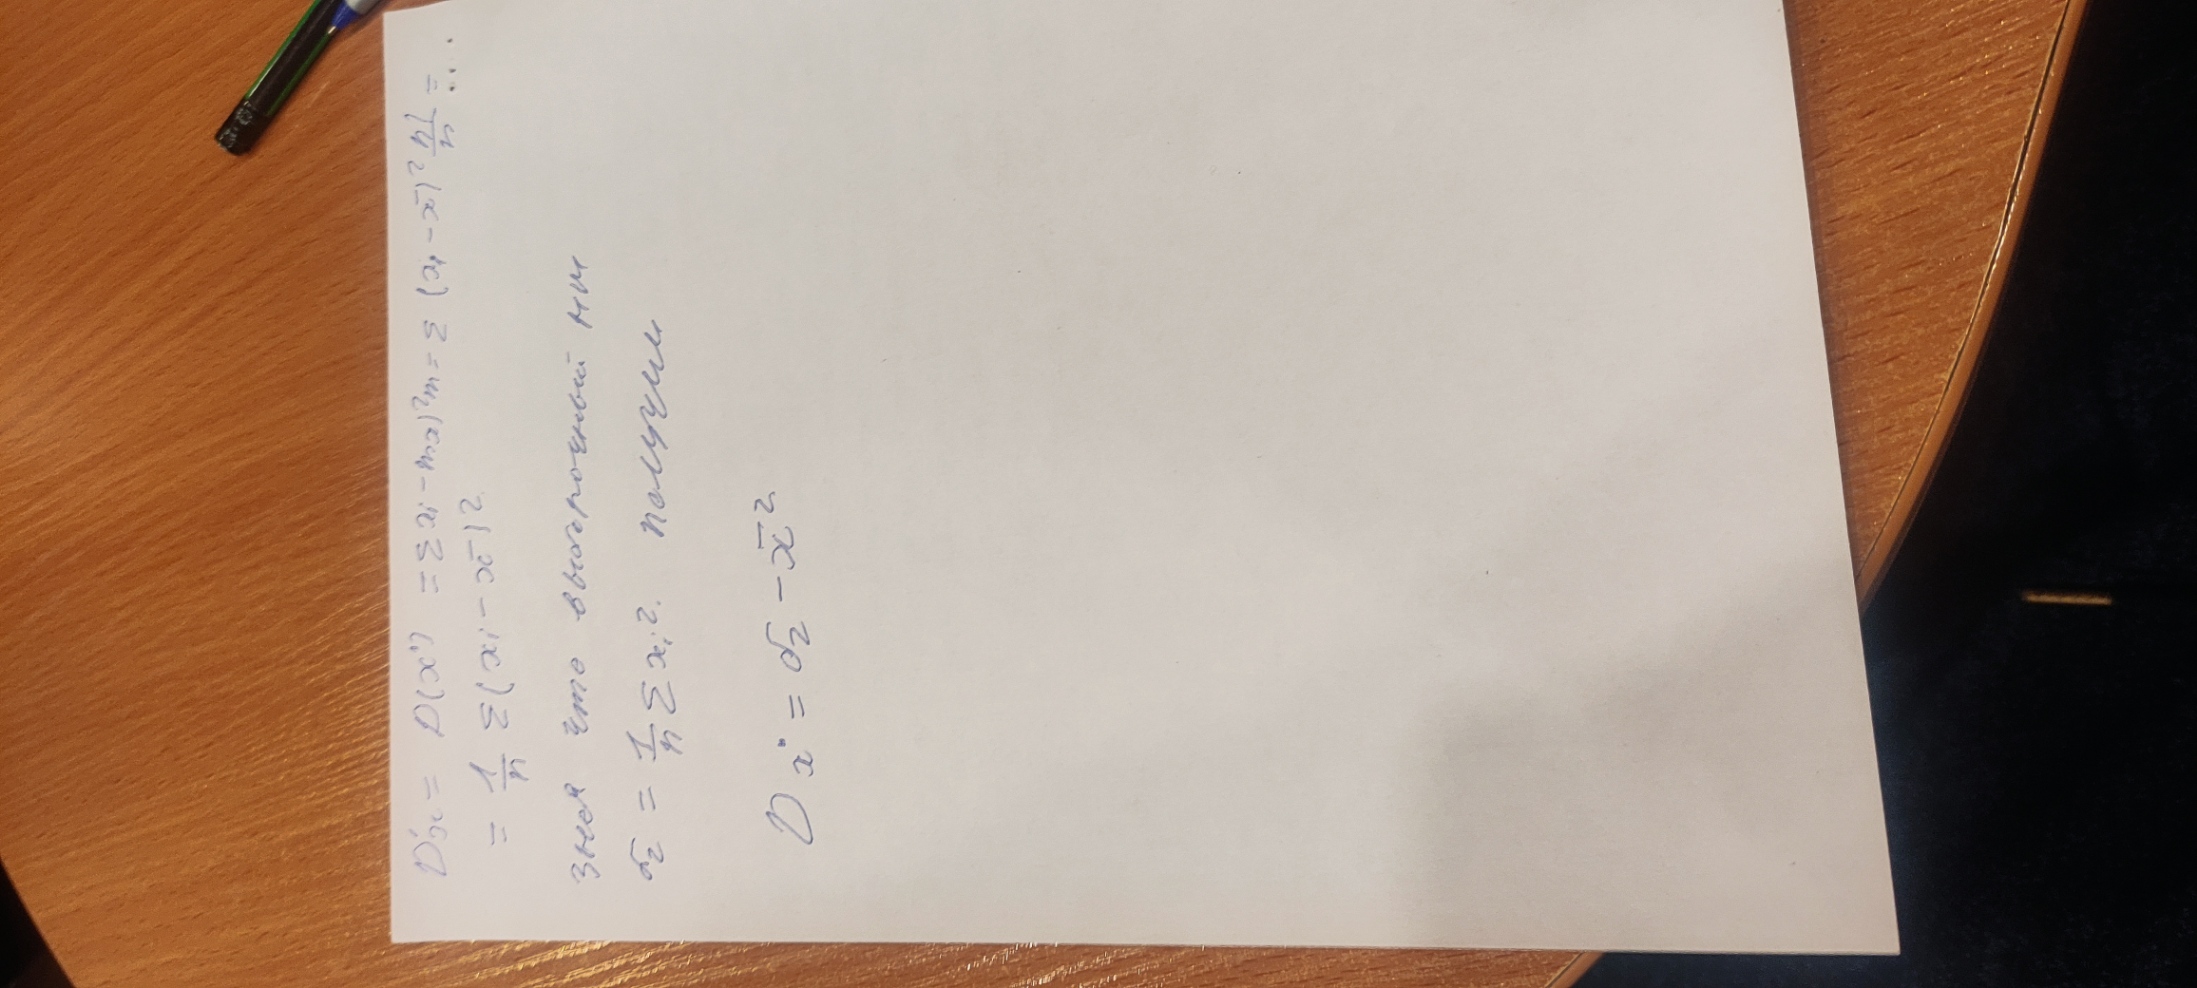 D'x = D(x') = Σ xi - mx)²m = Σ (xi - x̄)² n1/n = ...
= 1/n Σ(xi - x̄)²
зная что выборочный нм
σ2 = 1/n Σ xi². получим
Dx· = σ2 - x̄²